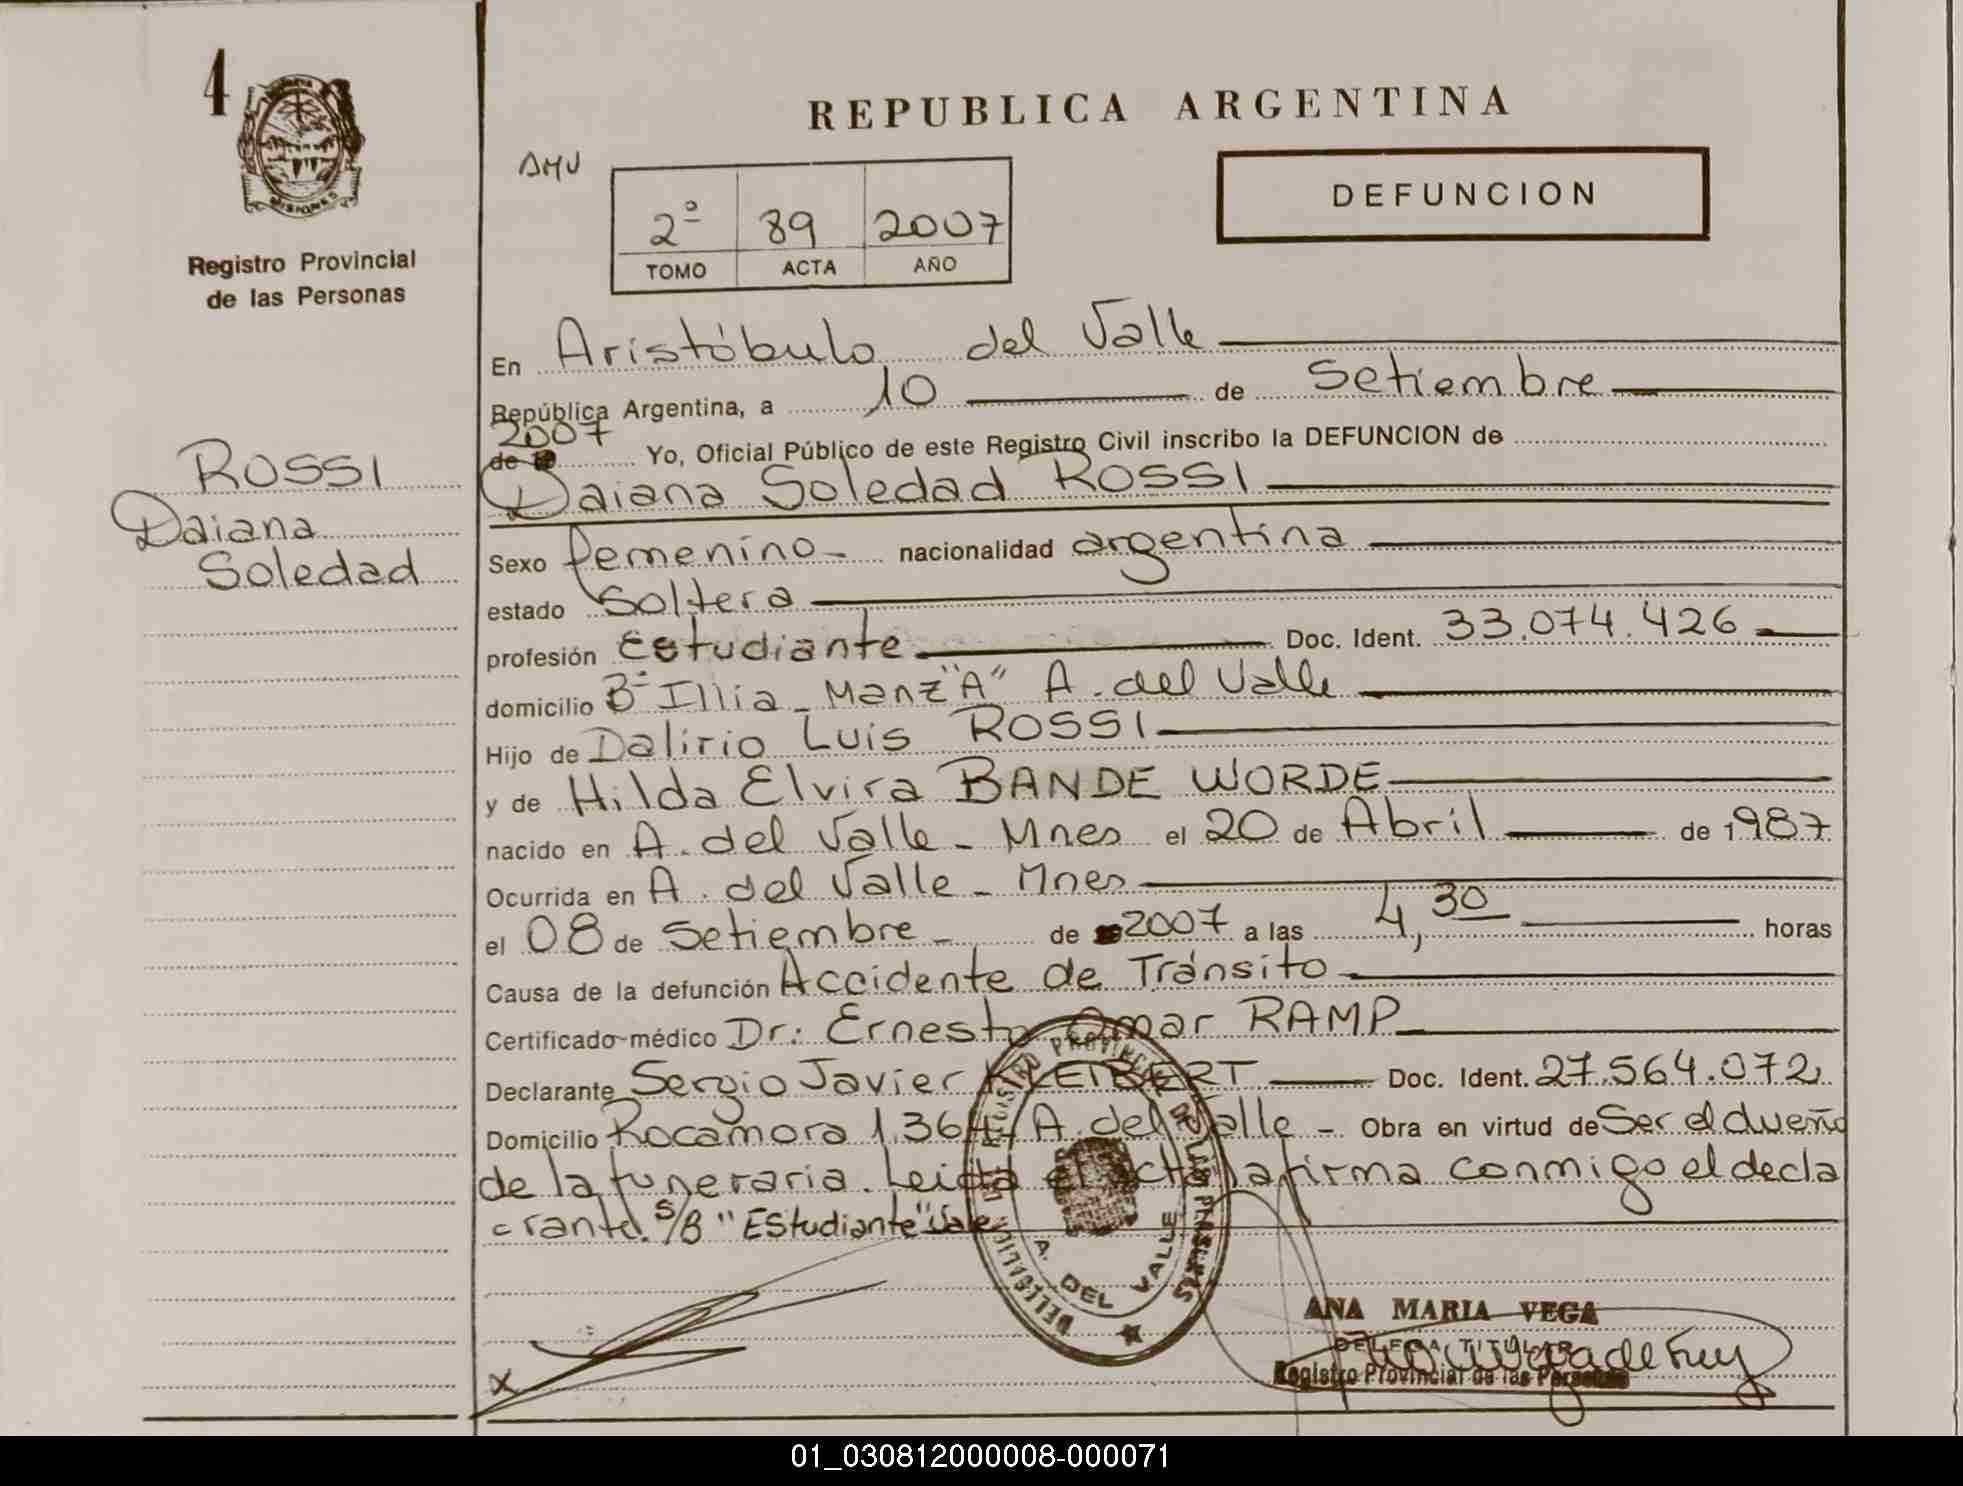 4
MISIONES
Registro Provincial
de las Personas
ROSSI
Daiana
Soledad
REPUBLICA ARGENTINA
AMV
2º 89 2007
TOMO ACTA AÑO
DEFUNCION
En Aristóbulo del Valle
República Argentina, a 10 de Setiembre
2007
de Yo, Oficial Público de este Registro Civil inscribo la DEFUNCION de
Daiana Soledad ROSSI
Sexo femenino - nacionalidad argentina
estado Soltera
profesión Estudiante Doc. Ident. 33.074.426
domicilio Bº Illia - Manz "A" A. del Valle
Hijo de Dalirio Luis ROSSI
y de Hilda Elvira BANDE WORDE
nacido en A. del Valle - Mnes el 20 de Abril de 1987
Ocurrida en A. del Valle - Mnes
el 08 de Setiembre - de 2007 a las 4,30 horas
Causa de la defunción Accidente de Tránsito
Certificado médico Dr: Ernesto Omar RAMP
Declarante Sergio Javier KLEIBERT Doc. Ident. 27.564.072
Domicilio Rocamora 1.364 A. del Valle - Obra en virtud de Ser el dueño
de la funeraria. Leida el acta la firma conmigo el decla
rante. S/B "EStudiante" Vale
REGISTRO PROVINCIAL DE LAS PERSONAS
A. DEL VALLE
X
ANA MARIA VEGA
DELEGA. TITULAR
Registro Provincial de las Personas
01_030812000008-000071